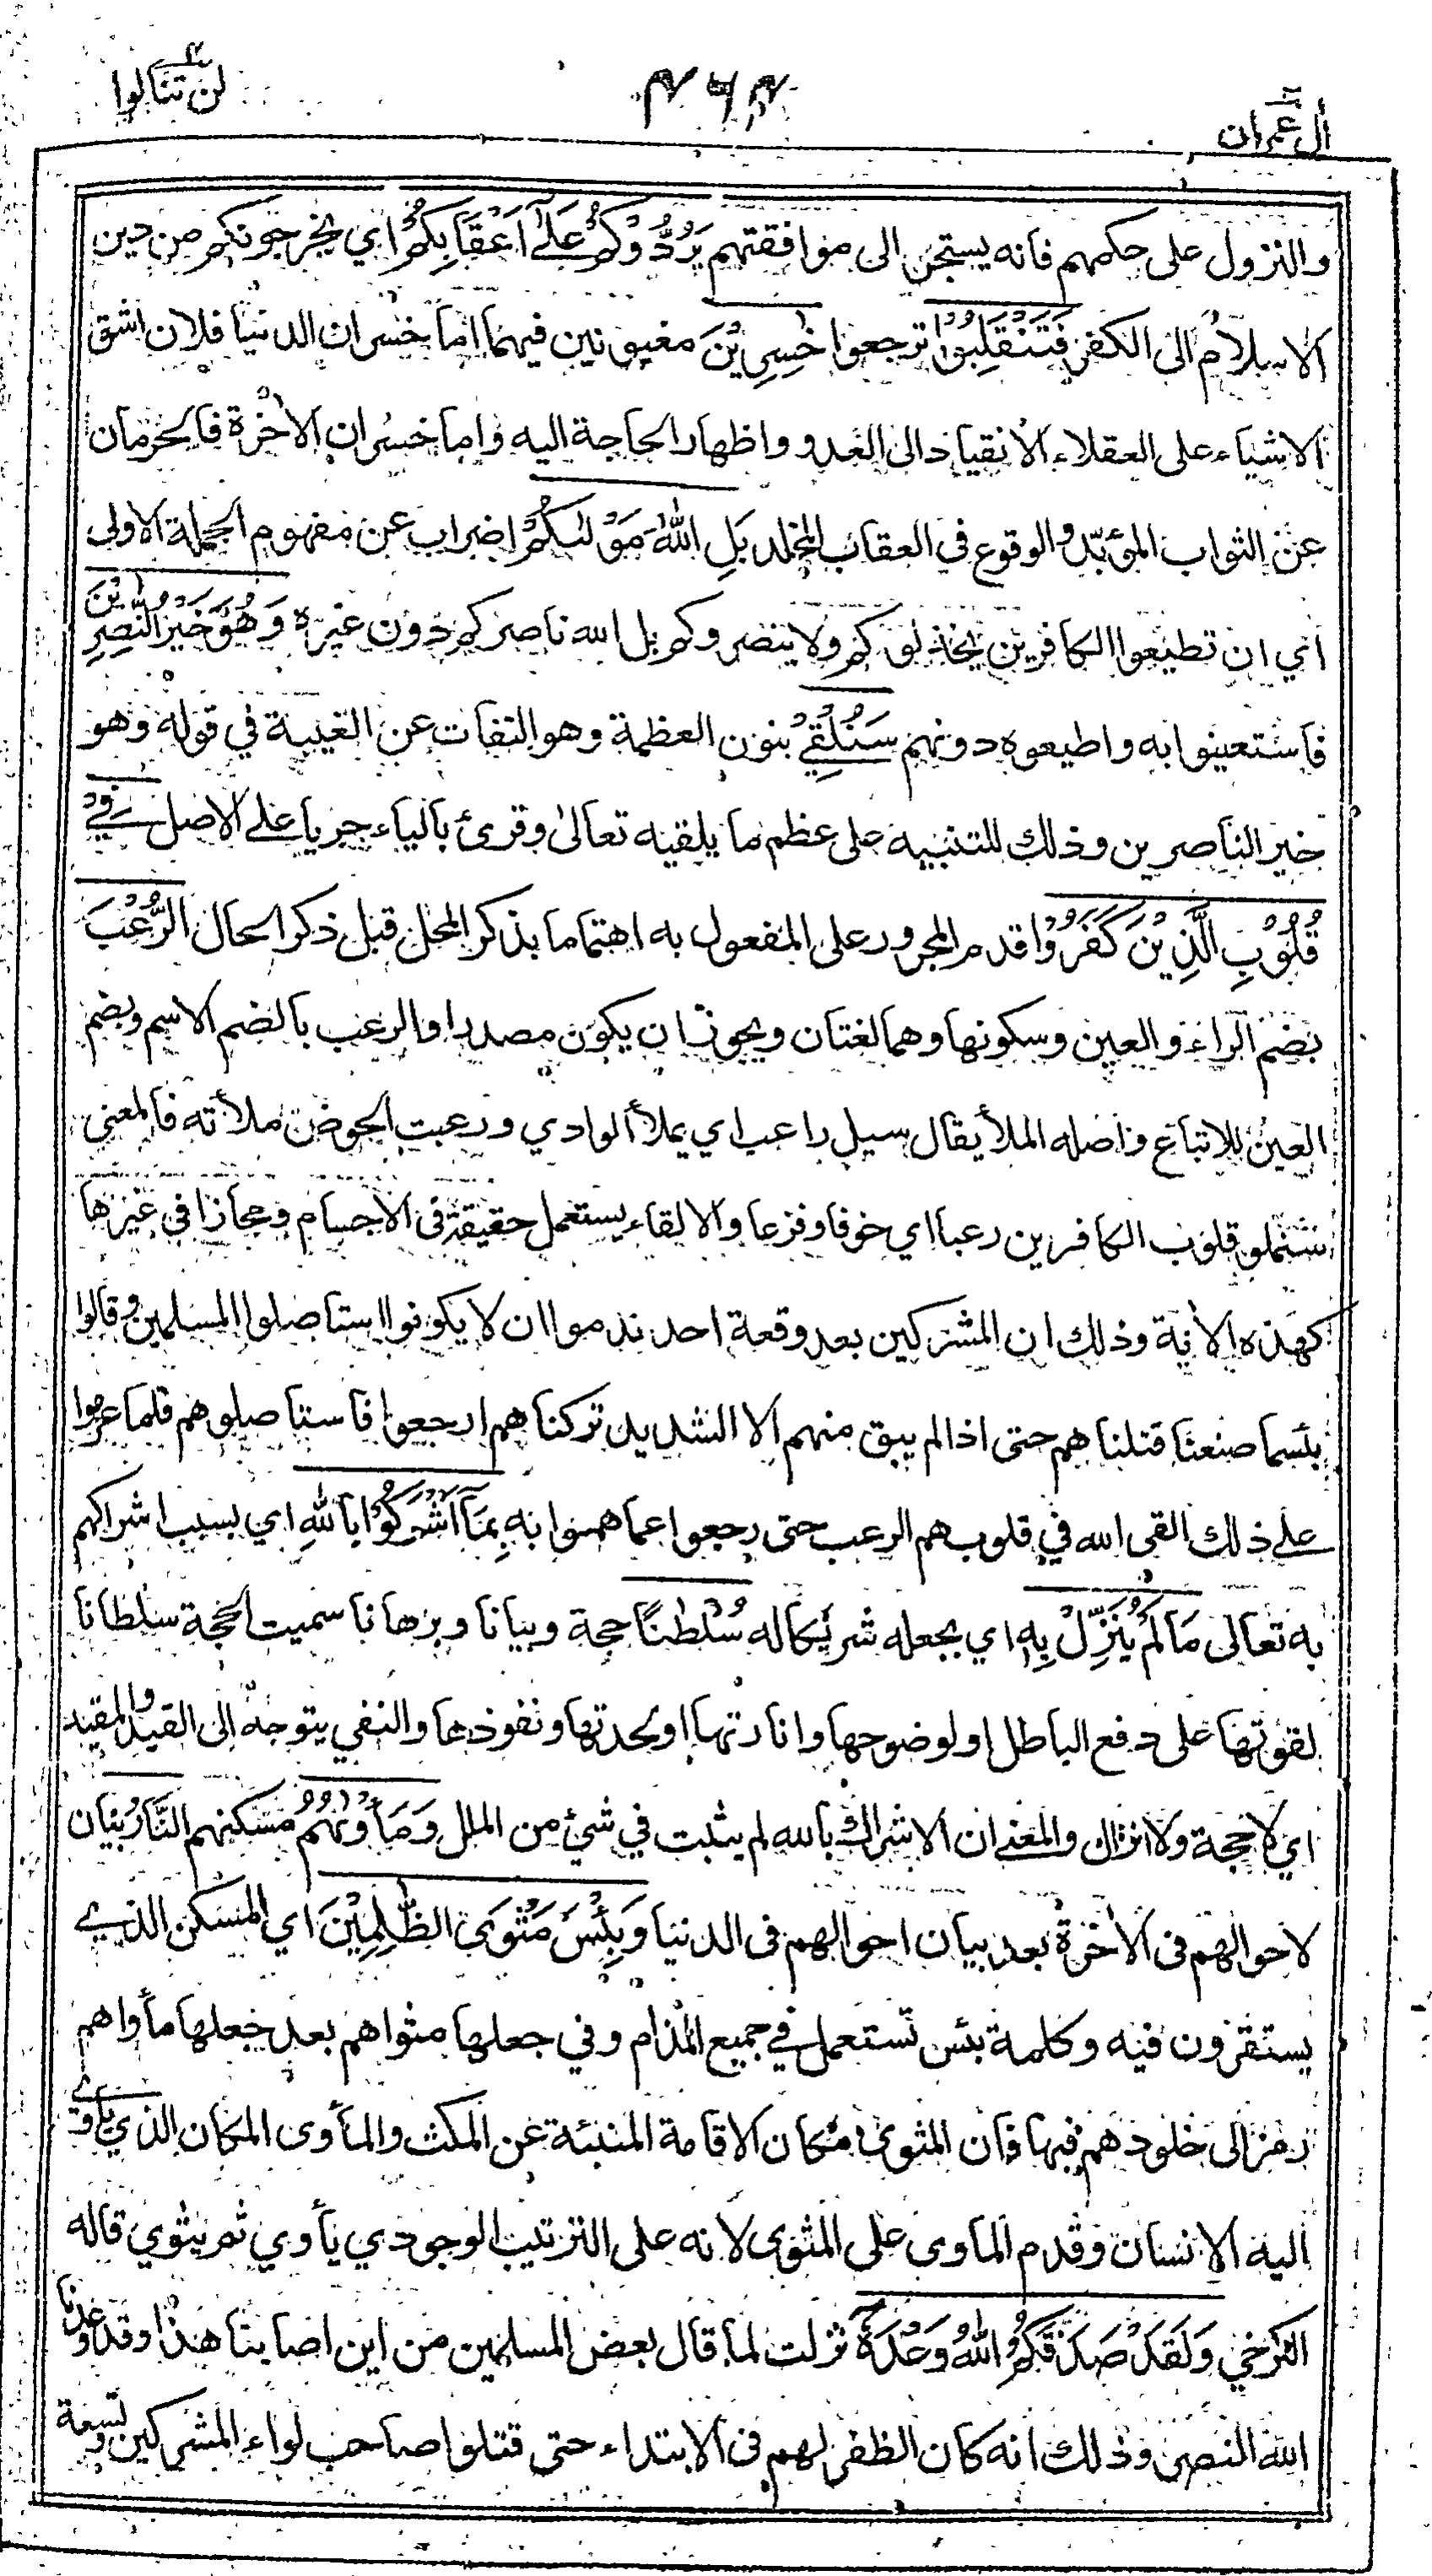 أل عمران
٤٦٢
لن تنالوا
والنزول على حكمهم فانه يستجر الى موافقتهم يَرُدُّوْكُمْ عَلٰٓى اَعْقَابِكُمْ اي يخرجونكم من دين
الاسلام الى الكفر فَتَنْقَلِبُوْا ترجعوا خٰسِرِيْنَ مغبونين فيهما اما خسران الدنيا فلان اشق
الاشياء على العقلاء الانقياد الى العدو واظهار الحاجة اليه واما خسران الأخرة فالحرمان
عن الثواب المؤبد والوقوع في العقاب المخلد بَلِ اللّٰهُ مَوْلٰىكُمْ اضراب عن مفهوم الجملة الاولى
اي ان تطيعوا الكافرين يخذلوكم ولا ينصروكم بل الله ناصركم دون غيره وَهُوَ خَيْرُ النّٰصِرِيْنَ
فاستعينوا به واطيعوه دونهم سَنُلْقِيْ بنون العظمة وهو التفات عن الغيبة في قوله وهو
خير الناصرين وذلك للتنبيه على عظم ما يلقيه تعالى وقرئ بالياء جريا على الاصل فِيْ
قُلُوْبِ الَّذِيْنَ كَفَرُوْا قدم المجرور على المفعول به اهتماما بذكر المحل قبل ذكر الحال الرُّعْبَ
بضم الراء والعين وسكونها وهما لغتان ويجوز ان يكون مصدرا والرعب بالضم الاسم وبضم
العين للاتباع واصله الملأ يقال سيل راعب اي يملأ الوادي ورعبت الحوض ملأته فالمعنى
سنملو قلوب الكافرين رعبا اي خوفا وفزعا والالقاء يستعمل حقيقة في الاجسام ومجازا في غيرها
كهذه الأية وذلك ان المشركين بعد وقعة احد ندموا ان لا يكونوا استاصلوا المسلمين وقالوا
بئسما صنعنا قتلنا هم حتى اذا لم يبق منهم الا الشديد تركنا هم ارجعوا فاستاصلوهم فلما عزموا
على ذلك القى الله في قلوب هم الرعب حتى رجعوا عما هموا به بِمَآ اَشْرَكُوْا بِاللّٰهِ اي بسبب اشراكهم
به تعالى مَا لَمْ يُنَزِّلْ بِهٖ اي بجعله شريكا له سُلْطٰنًا حجة وبيانا وبرهانا سميت الحجة سلطانا
لقوتها على دفع الباطل او لوضوحها وانارتها او لحدتها ونفوذها والنفي يتوجه الى القيد والمقيد
اي لا حجة ولا انزال والمعنى ان الاشراك بالله لم يثبت في شئ من الملل وَمَأْوٰىهُمُ مسكنهم النَّارُ بيان
لاحوالهم في الأخرة بعد بيان احوالهم في الدنيا وَبِئْسَ مَثْوَى الظّٰلِمِيْنَ اي المسكن الذي
يستقرون فيه وكلمة بئس تستعمل في جميع المذام وفي جعلها مثواهم بعد جعلها مأواهم
رمز الى خلودهم فيها فان المثوى مكان الاقامة المنبئة عن المكث والمأوى المكان الذي يأوي
اليه الانسان وقدم الماوى على المثوى لانه على الترتيب الوجودي يأوي ثم يثوي قاله
الكرخي وَلَقَدْ صَدَقَكُمُ اللّٰهُ وَعْدَهٗٓ نزلت لما قال بعض المسلمين من اين اصابنا هذا وقد وعدنا
الله النصر وذلك انه كان الظفر لهم في الابتداء حتى قتلوا صاحب لواء المشركين وتسعة